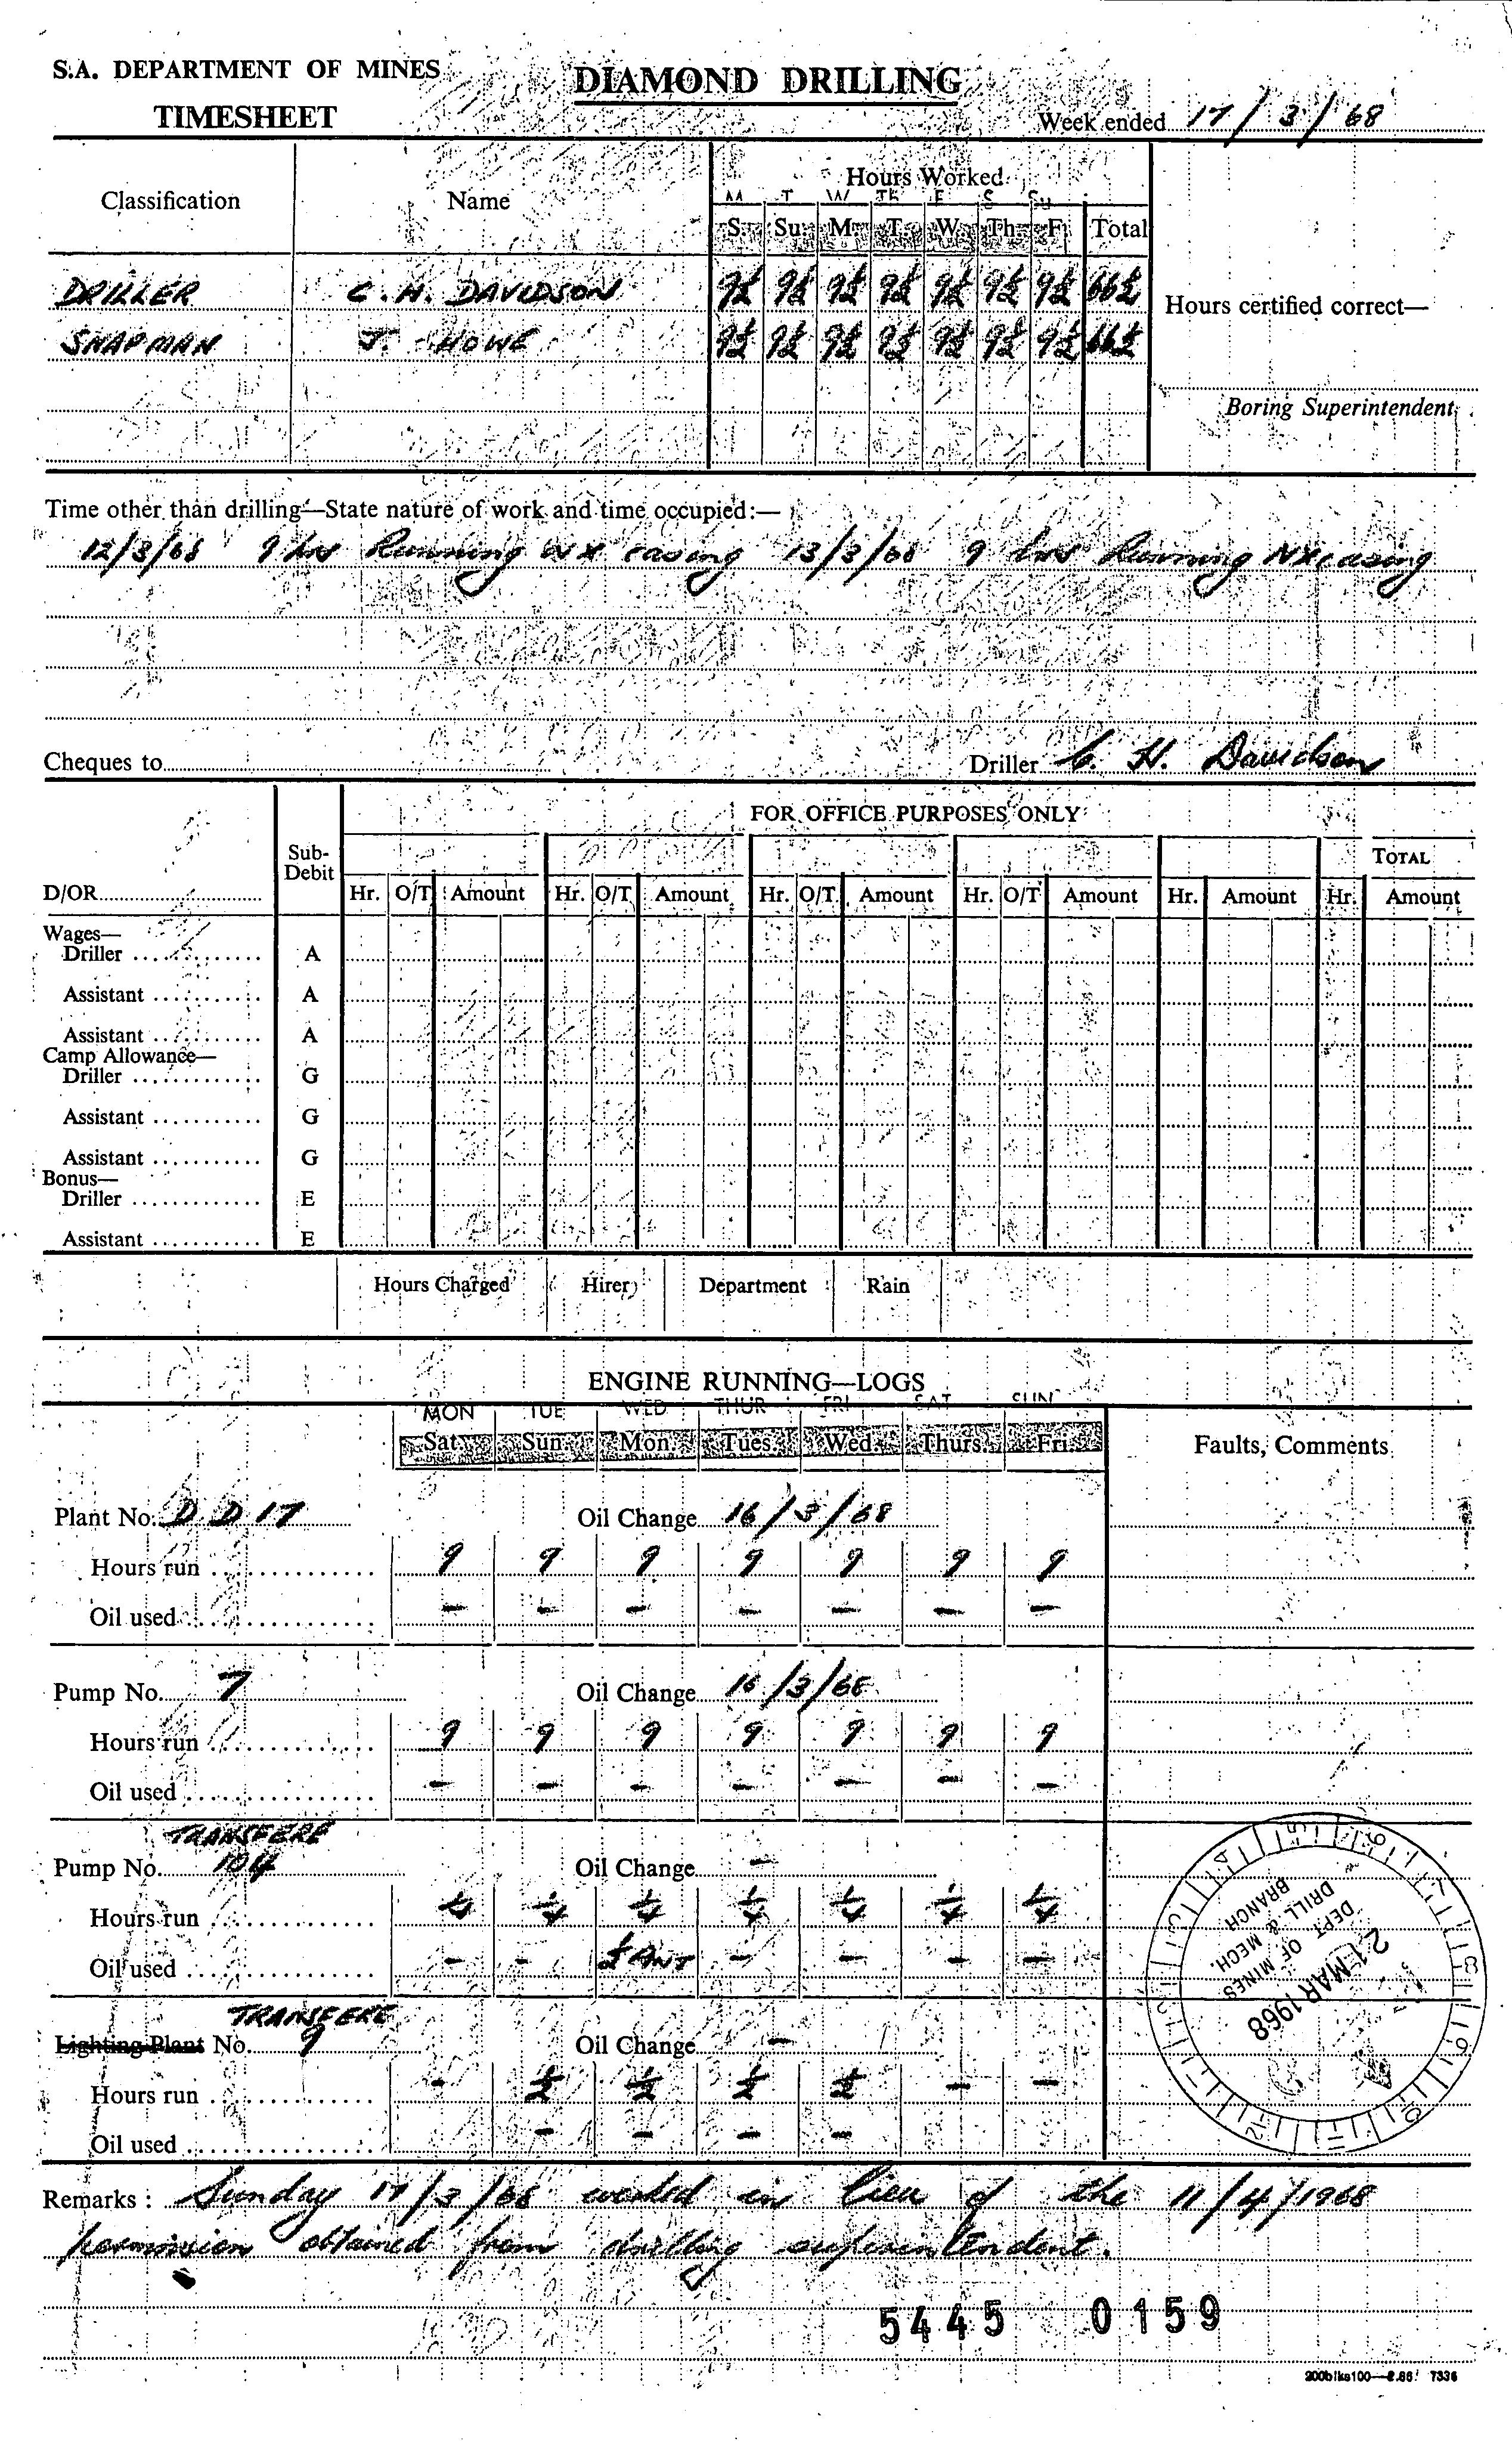 S.A. DEPARTMENT OF MINES
DIAMOND DRILLING
TIMESHEET
Week ended 17/3/68
Classification Name Hours Worked
M T W Th F S Su
S. Su. M. T. W. Th. F. Total
DRILLER C. H. DAVIDSON 9½ 9½ 9½ 9½ 9½ 9½ 9½ 66½
Hours certified correct—
SHAPMAN J. HOWE 9½ 9½ 9½ 9½ 9½ 9½ 9½ 66½
Boring Superintendent
Time other than drilling—State nature of work and time occupied:—
12/3/68 9 hrs Running NX casing 13/3/68 9 hrs Running NX casing
Cheques to Driller C. H. Davidson
FOR OFFICE PURPOSES ONLY
Sub-Debit TOTAL
D/OR Hr. O/T Amount Hr. O/T Amount Hr. O/T Amount Hr. O/T Amount Hr. Amount Hr. Amount
Wages—
Driller A
Assistant A
Assistant A
Camp Allowance—
Driller G
Assistant G
Assistant G
Bonus—
Driller E
Assistant E
Hours Charged Hirer Department Rain
ENGINE RUNNING—LOGS
MON TUE WED THUR FRI SAT SUN
Sat. Sun. Mon. Tues. Wed. Thurs. Fri. Faults, Comments
Plant No. D D 17 Oil Change 16/3/68
Hours run 9 9 9 9 9 9 9
Oil used — — — — — — —
Pump No. 7 Oil Change 16/3/68
Hours run 9 9 9 9 9 9 9
Oil used — — — — — — —
TRANSFERE
Pump No. 104 Oil Change —
Hours run ¼ ¼ ¼ ¼ ¼ ¼ ¼
Oil used — — — — — —
TRANSFERE
Lighting Plant No. 9 Oil Change —
Hours run — ½ ½ ½ ½ — —
Oil used — — — —
DEPT. OF MINES
DRILL & MECH.
BRANCH
21 MAR 1968
Remarks: Sunday 17/3/68 worked in lieu of the 11/4/1968
permission obtained from drilling superintendent.
5445 0159
200blks100—2.66 7336